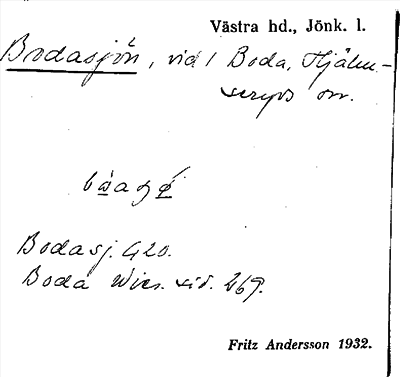 Västra hd., Jönk. l.
Bodasjön, vid Boda, Hjälm-
seryds sn.
Bodasj. G20.
Boda Wies. sid. 269.
Fritz Andersson 1932.